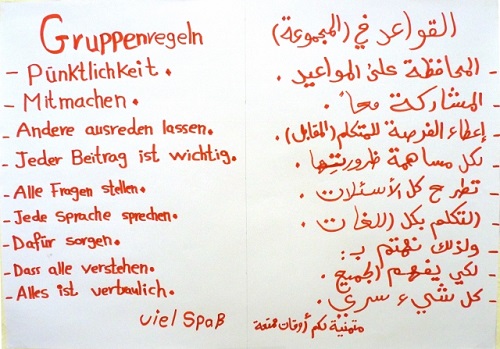 Gruppenregeln
- Pünktlichkeit.
- Mitmachen.
- Andere ausreden lassen.
- Jeder Beitrag ist wichtig.
- Alle Fragen stellen.
- Jede Sprache sprechen.
- Dafür sorgen.
- Dass alle verstehen.
- Alles ist verbaulich.
viel Spaß
القواعد في (المجموعة)
- المحافظة على المواعيد.
- المشاركة معاً.
- إعطاء الفرصة للمتكلم (المقابل).
- بكل مساهمة
- تطرح كل الأسئلات.
- التكلم بكل اللغات.
- ولذلك نهتم بـ:
- لكي يفهم الجميع.
- كل شيء سري.
متمنية لكم أوقات ممتعة